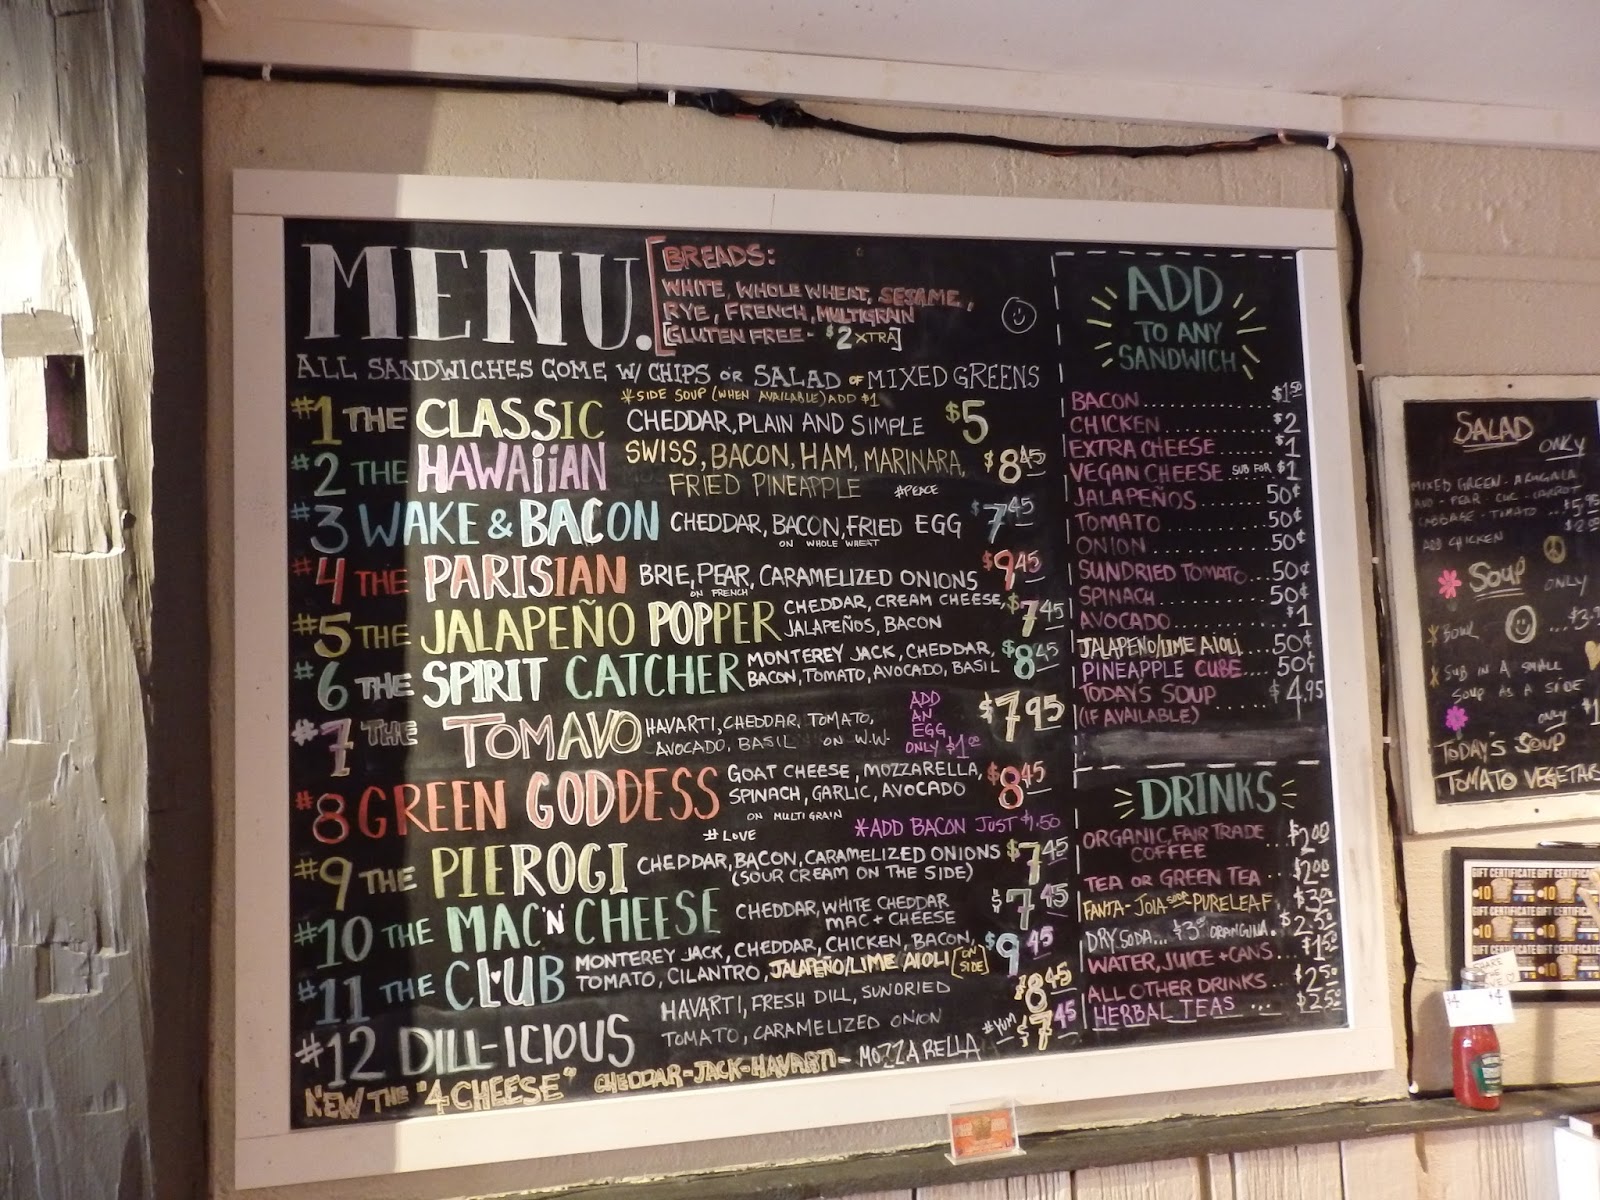 MENU.
BREADS:
WHITE, WHOLE WHEAT, SESAME,
RYE, FRENCH, MULTIGRAIN
[GLUTEN FREE - $2 XTRA]
ALL SANDWICHES COME W/ CHIPS OR SALAD OF MIXED GREENS
*SIDE SOUP (WHEN AVAILABLE) ADD $1
#1 THE CLASSIC CHEDDAR, PLAIN AND SIMPLE $5
#2 THE HAWAiiAN SWISS, BACON, HAM, MARINARA, $8.45
FRIED PINEAPPLE #PEACE
#3 WAKE & BACON CHEDDAR, BACON, FRIED EGG $7.45
ON WHOLE WHEAT
#4 THE PARISIAN BRIE, PEAR, CARAMELIZED ONIONS $9.45
ON FRENCH
#5 THE JALAPEÑO POPPER CHEDDAR, CREAM CHEESE, $7.45
JALAPEÑOS, BACON
#6 THE SPIRIT CATCHER MONTEREY JACK, CHEDDAR, $8.45
BACON, TOMATO, AVOCADO, BASIL
#7 THE TOMAVO HAVARTI, CHEDDAR, TOMATO, $7.95
AVOCADO, BASIL ON W.W.
ADD
AN
EGG
ONLY $1.00
#8 GREEN GODDESS GOAT CHEESE, MOZZARELLA, $8.45
SPINACH, GARLIC, AVOCADO
ON MULTI GRAIN
#LOVE *ADD BACON JUST $1.50
#9 THE PIEROGI CHEDDAR, BACON, CARAMELIZED ONIONS $7.45
(SOUR CREAM ON THE SIDE)
#10 THE MAC 'N' CHEESE CHEDDAR, WHITE CHEDDAR $7.45
MAC + CHEESE
#11 THE CLUB MONTEREY JACK, CHEDDAR, CHICKEN, BACON, $9.45
TOMATO, CILANTRO, JALAPEÑO/LIME AIOLI [ON SIDE]
#12 DILL-ICIOUS HAVARTI, FRESH DILL, SUNDRIED $8.45
TOMATO, CARAMELIZED ONION #YUM
NEW THE "4 CHEESE" CHEDDAR-JACK-HAVARTI-MOZZARELLA $7.45
ADD
TO ANY
SANDWICH
BACON $1.50
CHICKEN $2
EXTRA CHEESE $1
VEGAN CHEESE SUB FOR $1
JALAPEÑOS 50¢
TOMATO 50¢
ONION 50¢
SUNDRIED TOMATO... 50¢
SPINACH 50¢
AVOCADO $1
JALAPEÑO/LIME AIOLI 50¢
PINEAPPLE CUBE 50¢
TODAY'S SOUP $4.95
(IF AVAILABLE)
DRINKS
ORGANIC, FAIR TRADE
COFFEE $2.00
TEA OR GREEN TEA $2.00
FANTA - JOIA PURELEAF
DRY SODA... ORANGINA
WATER, JUICE + CANS $1.50
ALL OTHER DRINKS $2.50
HERBAL TEAS ... $2.50
SALAD
ONLY
MIXED GREEN - ARUGULA
AND - PEAR - CUC - CARROT
CABBAGE - TOMATO ... $5.95
ADD CHICKEN $2.00
SOUP ONLY
*BOWL
*SUB IN A SMALL
SOUP AS A SIDE
ONLY
TODAY'S SOUP
TOMATO
GIFT CERTIFICATE GIFT CERTIFICATE
$10 $10
GIFT CERTIFICATE GIFT CERTIFICATE
$10 $10
GIFT CERTIFICATE GIFT CERTIFICATE
$10 $10
$4 $4